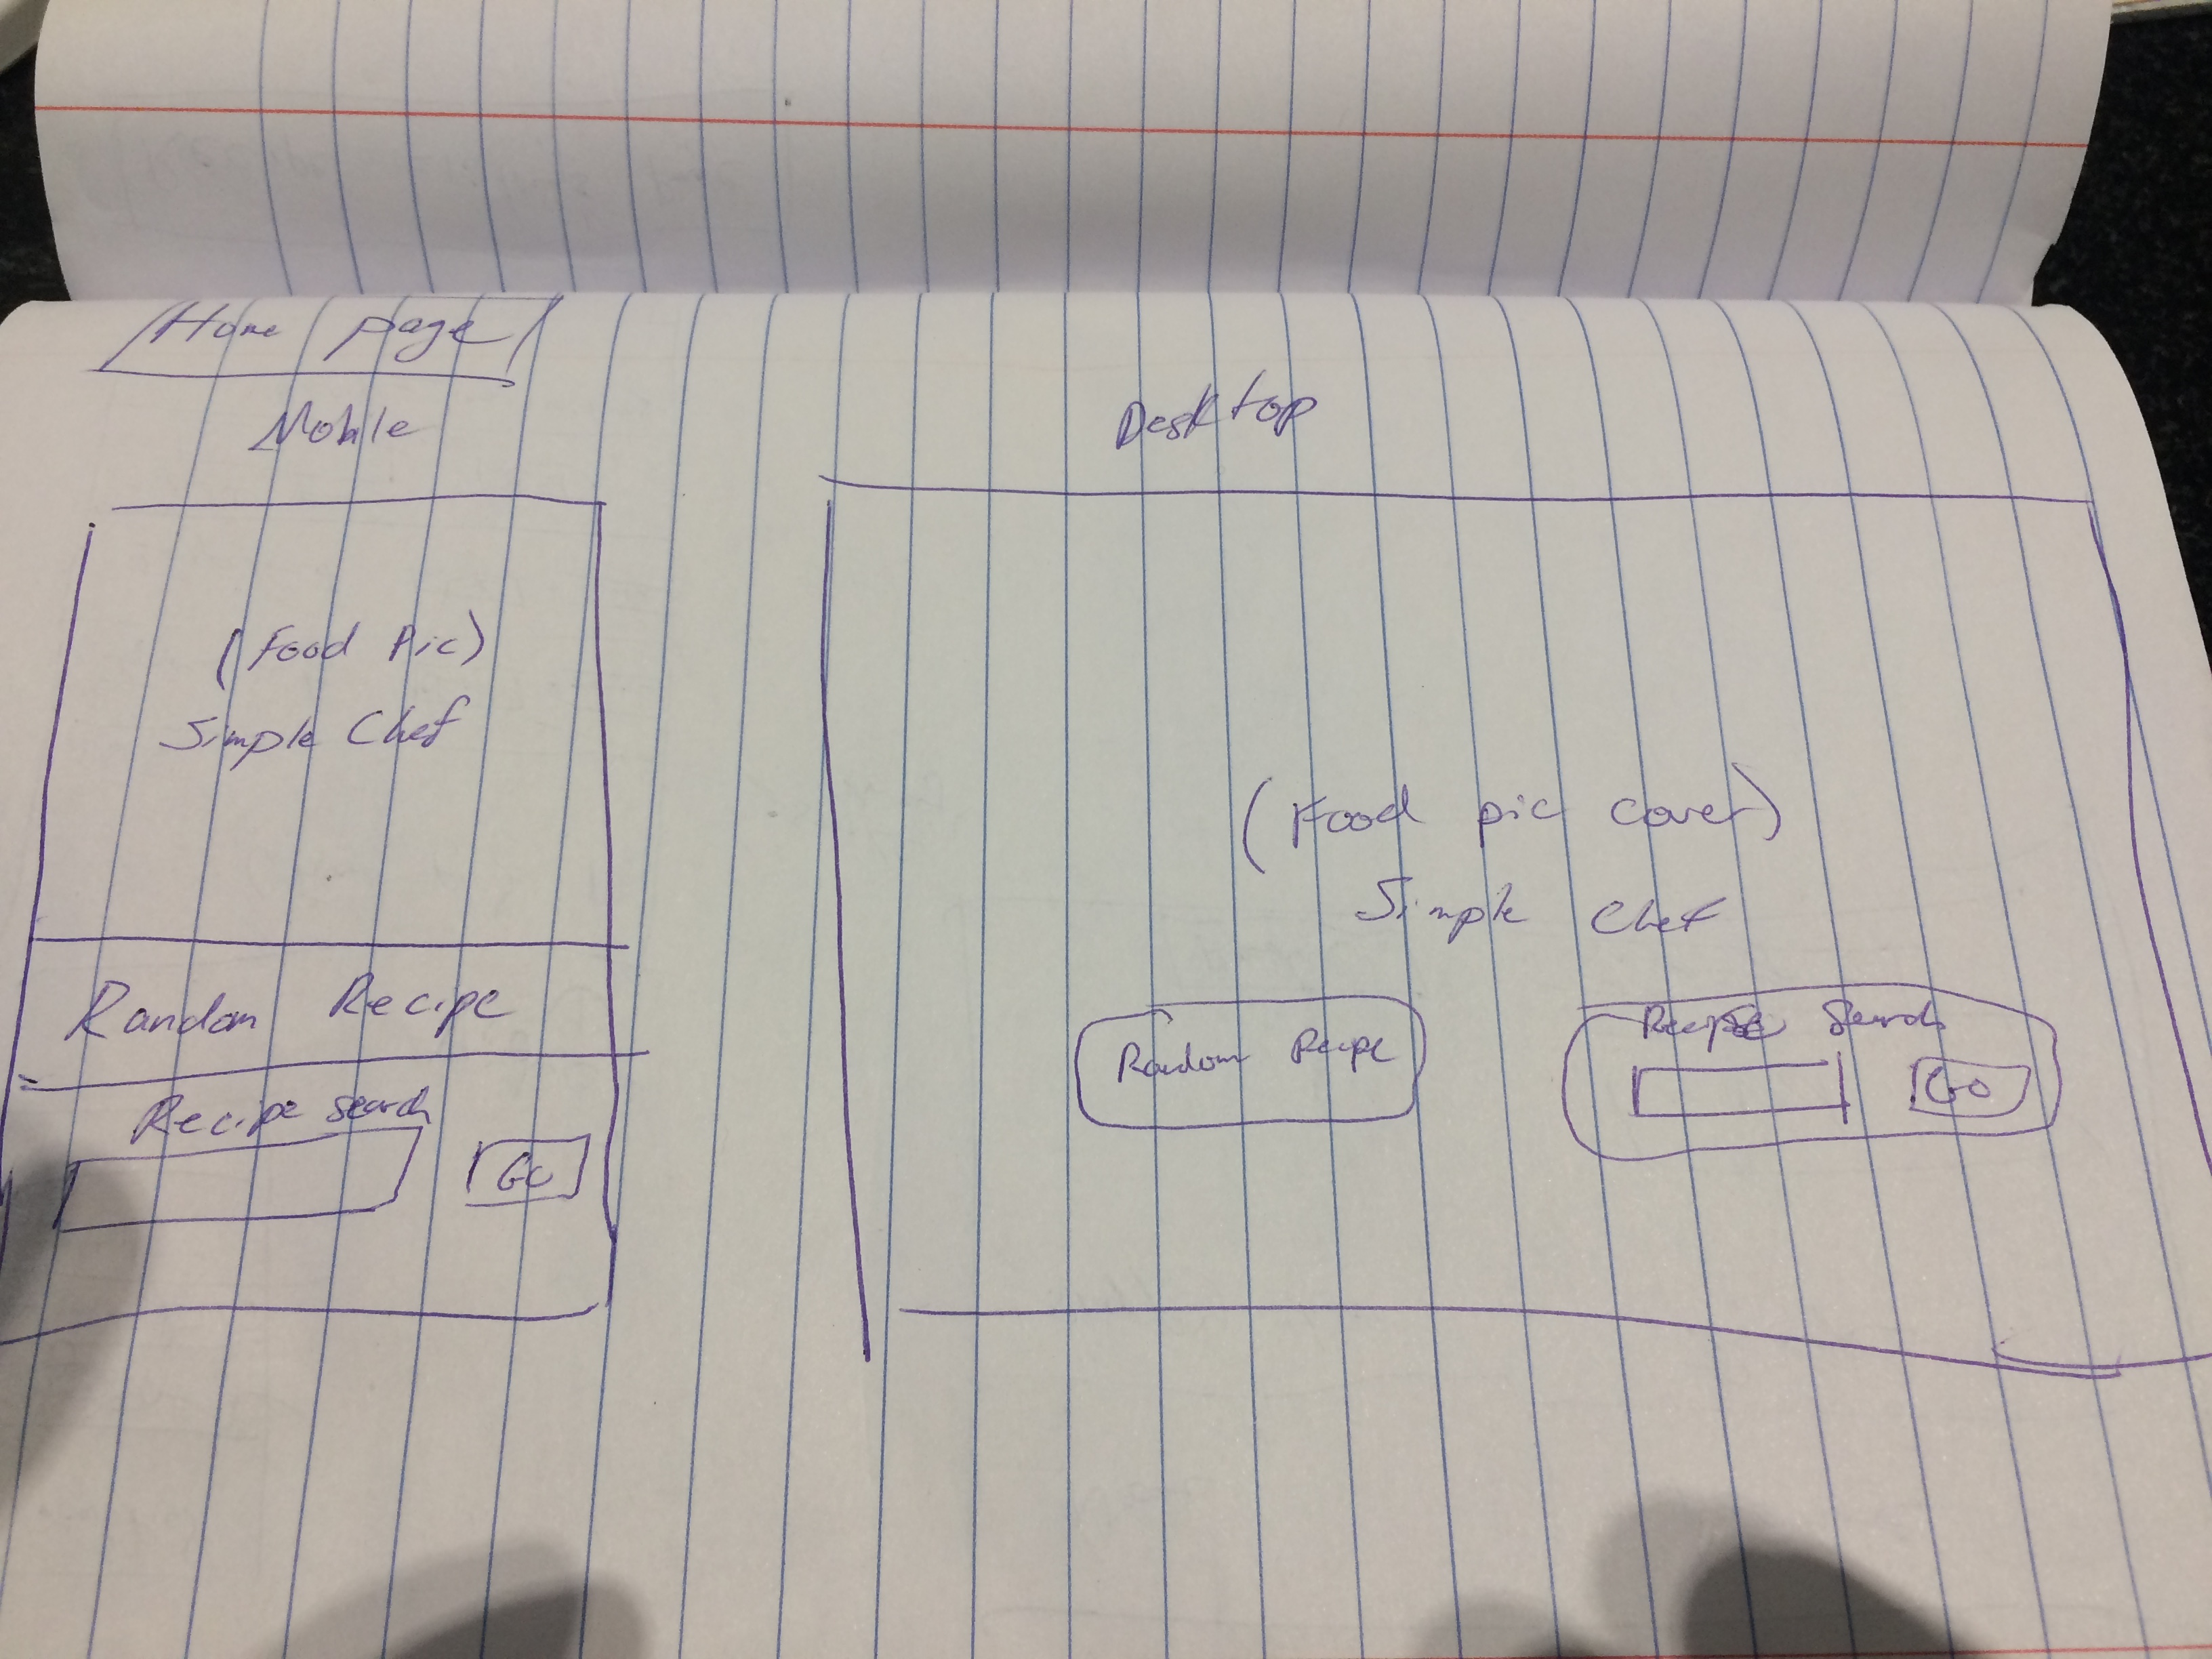 Home page
Mobile
(Food Pic)
Simple Chef
Random Recipe
Recipe search
GO
Desktop
(Food pic cover)
Simple Chef
Random Recipe
Recipe Search
GO